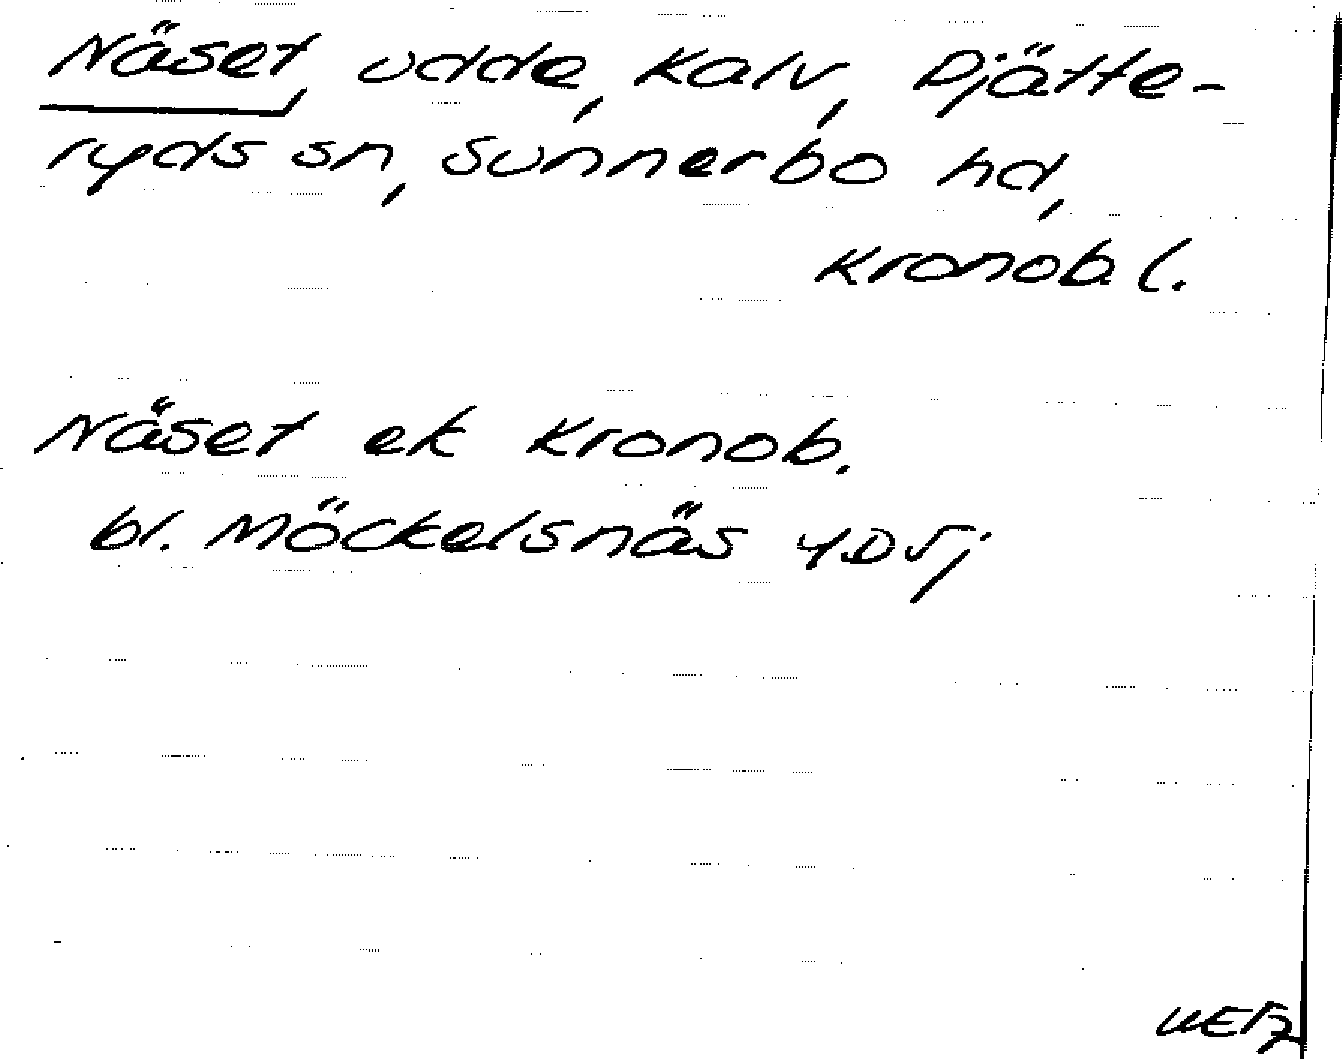 Näset, udde, Kalv, Pjätte-
ryds sn, Sunnerbo hd,
Kronob. l.
Näset ek Kronob.
bl. Möckelsnäs 4D Sj